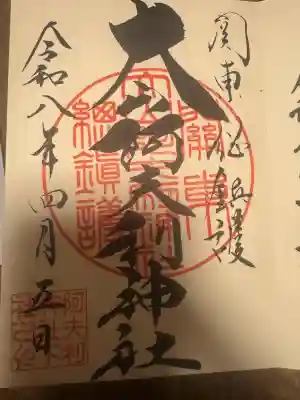 関東総鎮護
大山阿夫利神社
令和八年四月五日
關東
總鎮護
阿夫利